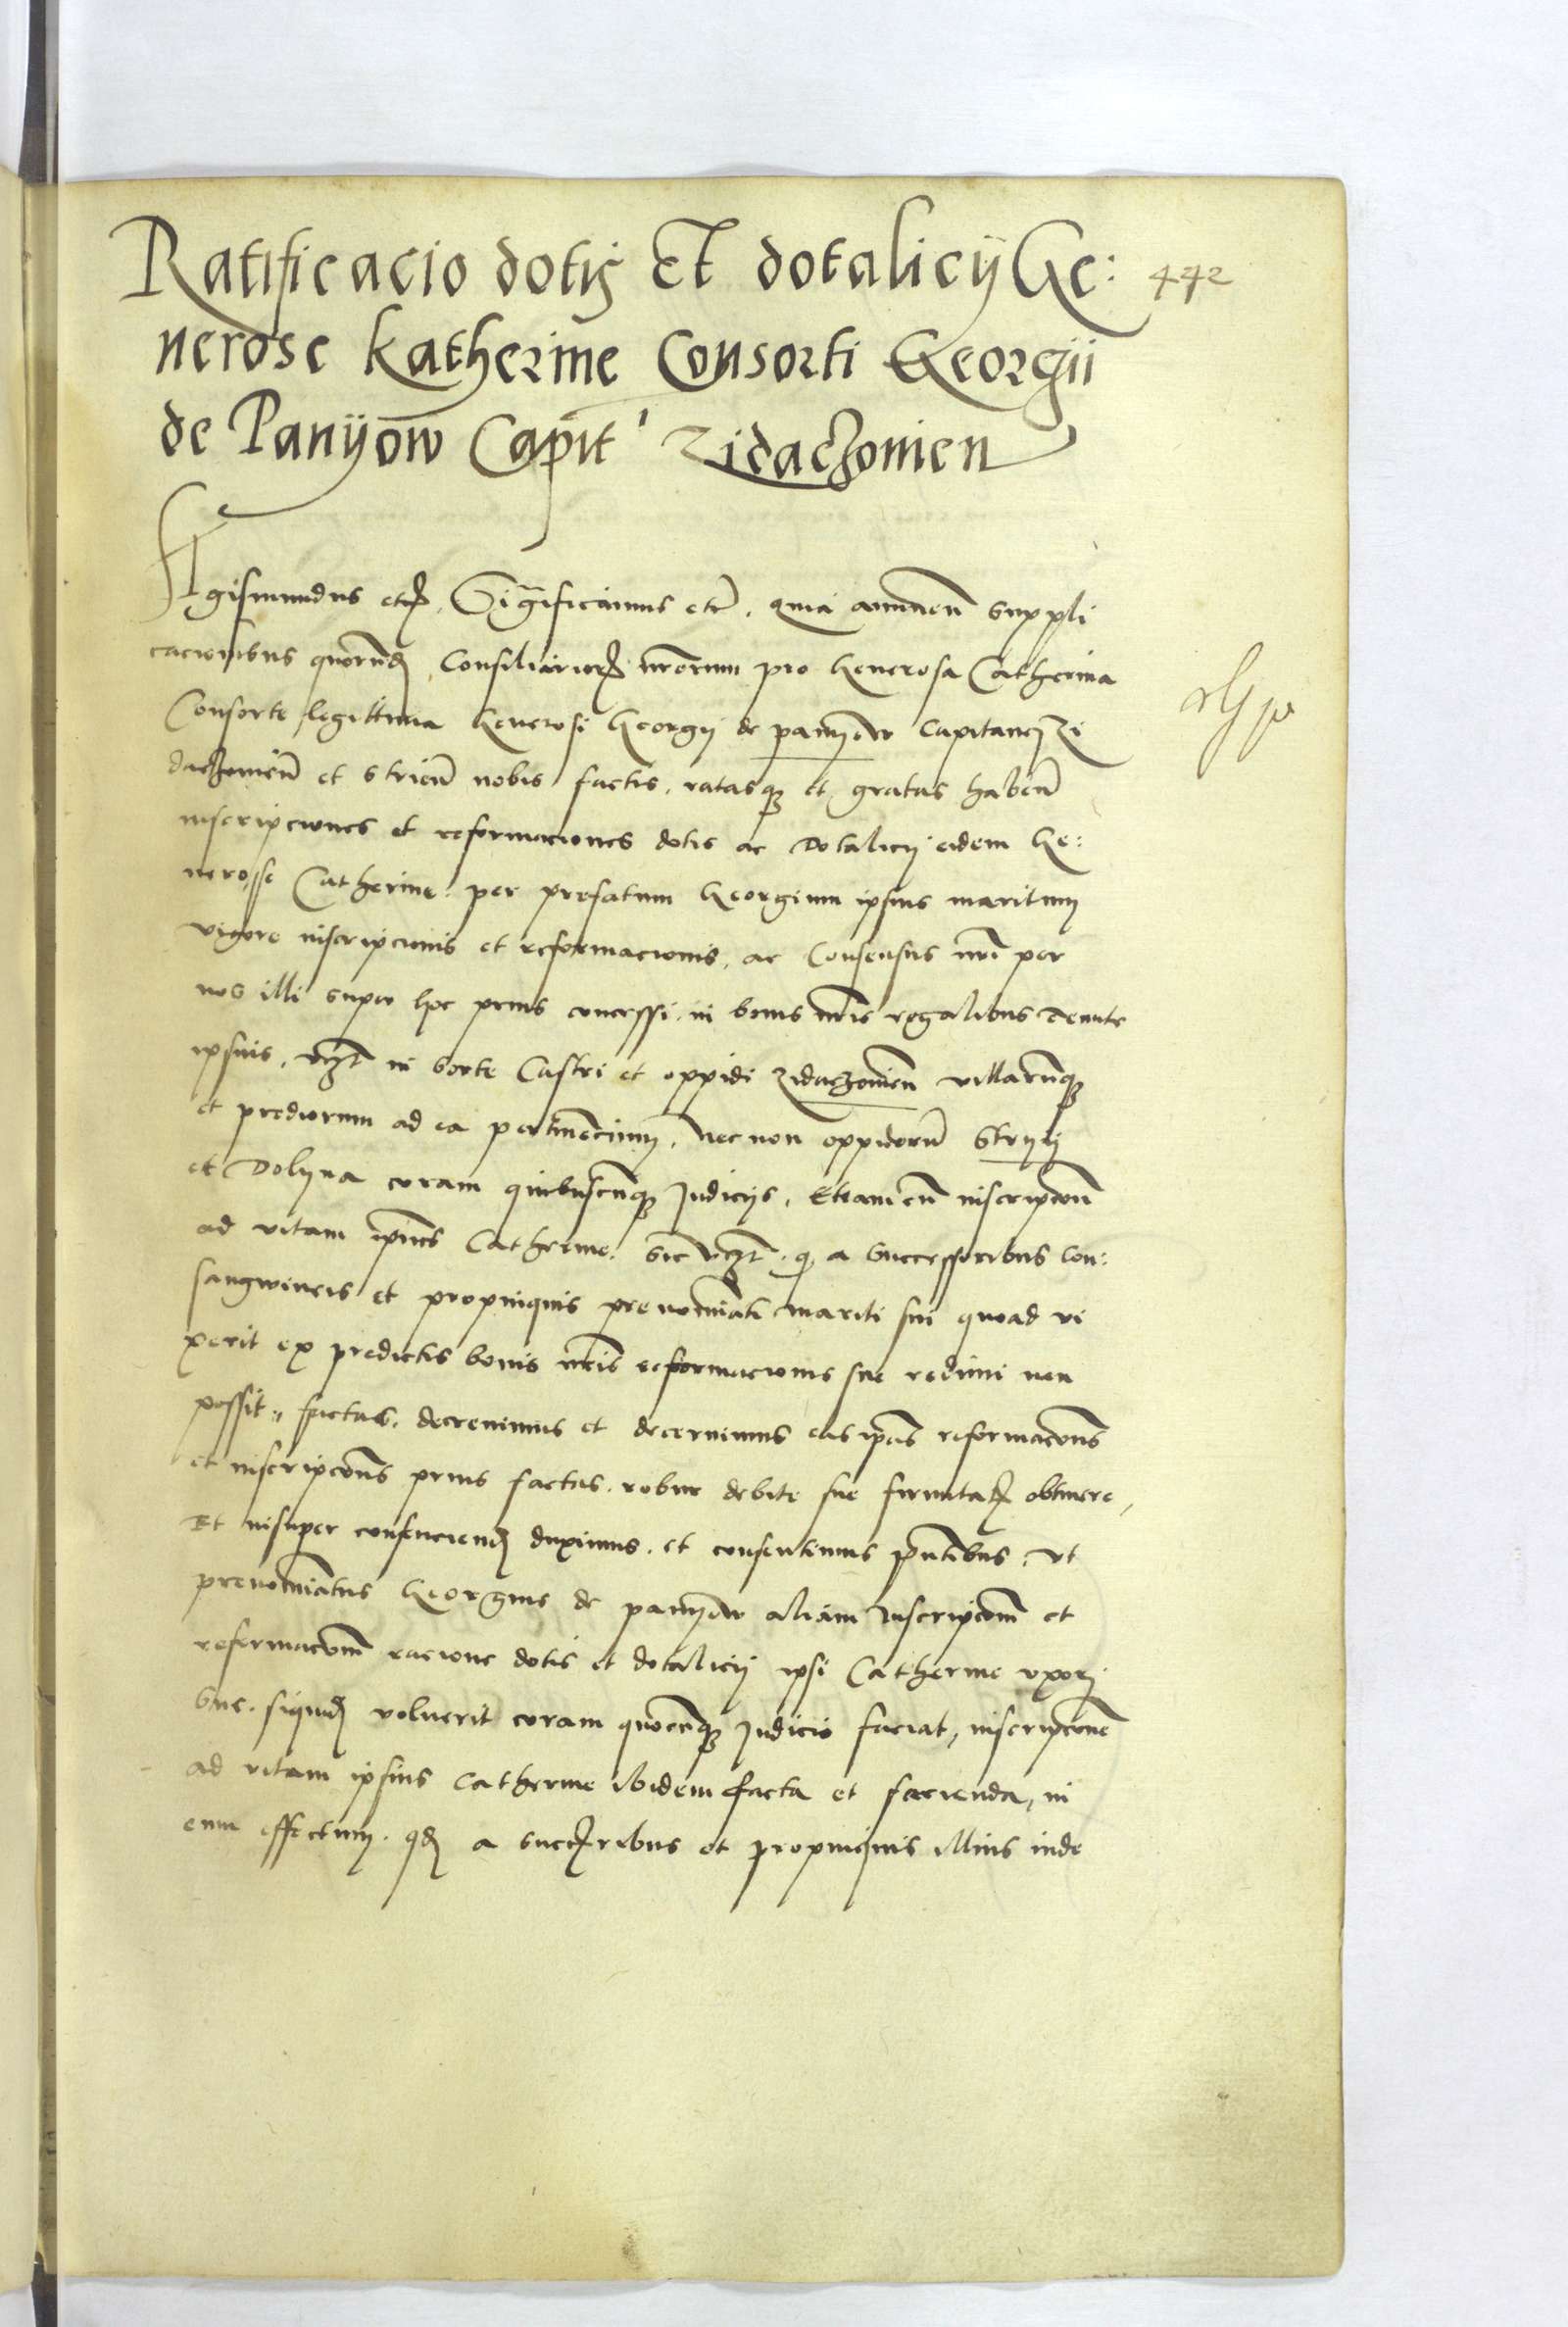 Ratificacio dotis Et dotalicij Ge:
442
nerose Katherine Consorti Georgii
de Panyow Capit Zidaczowien
Sigismundus etc. Significamus etc. quia annuen suppli
cacionibus quorund Consiliarior nrorum pro Generosa Catherina
Consorte legittima Generosi Georgij de panyow Capitanej Zi
daczowien et Strien nobis factis, ratasq et gratas haben
inscripciones et reformaciones dotis ac Dotalicij eidem Ge:
nerosse Catherine per prefatum Georgium ipsius maritum
vigore inscripcionis et reformacionis, ac Consensus nri per
nos illi super hoc prius concessi, in bonis nris regalibus Tenute
ipsius, vczt in sorte Castri et oppidi Zidaczowien villarumq
et prediorum ad ea pertinencium, necnon oppidorum Stryij
et Dolyna coram quibuscunq Judicijs, Etiam cum inscripcion
ad vitam ipius Catherine, sic vczt q a successoribus con:
sangwineis et propinquis prenominati mariti sui quoad vi
xerit ex predictis bonis nris reformacionis sue redimi non
possit, factas, decrevimus et decernimus eas ipas reformacions
et inscripcions prius factas, robur debite sue firmitat obtinere,
Et insuper consenciend duximus, et consentimus pntibus, vt
prenominatus Georgius de panyow aliam Inscripcionem et
reformacionem racione dotis et dotalicij ipsi Catherine vxori
sue, siquid voluerit coram quocunq Judicio faciat, inscripcione
ad vitam ipsius Catherine ibidem facta et facienda, in
eum effectum, qd a succribus et propinquis illius inde